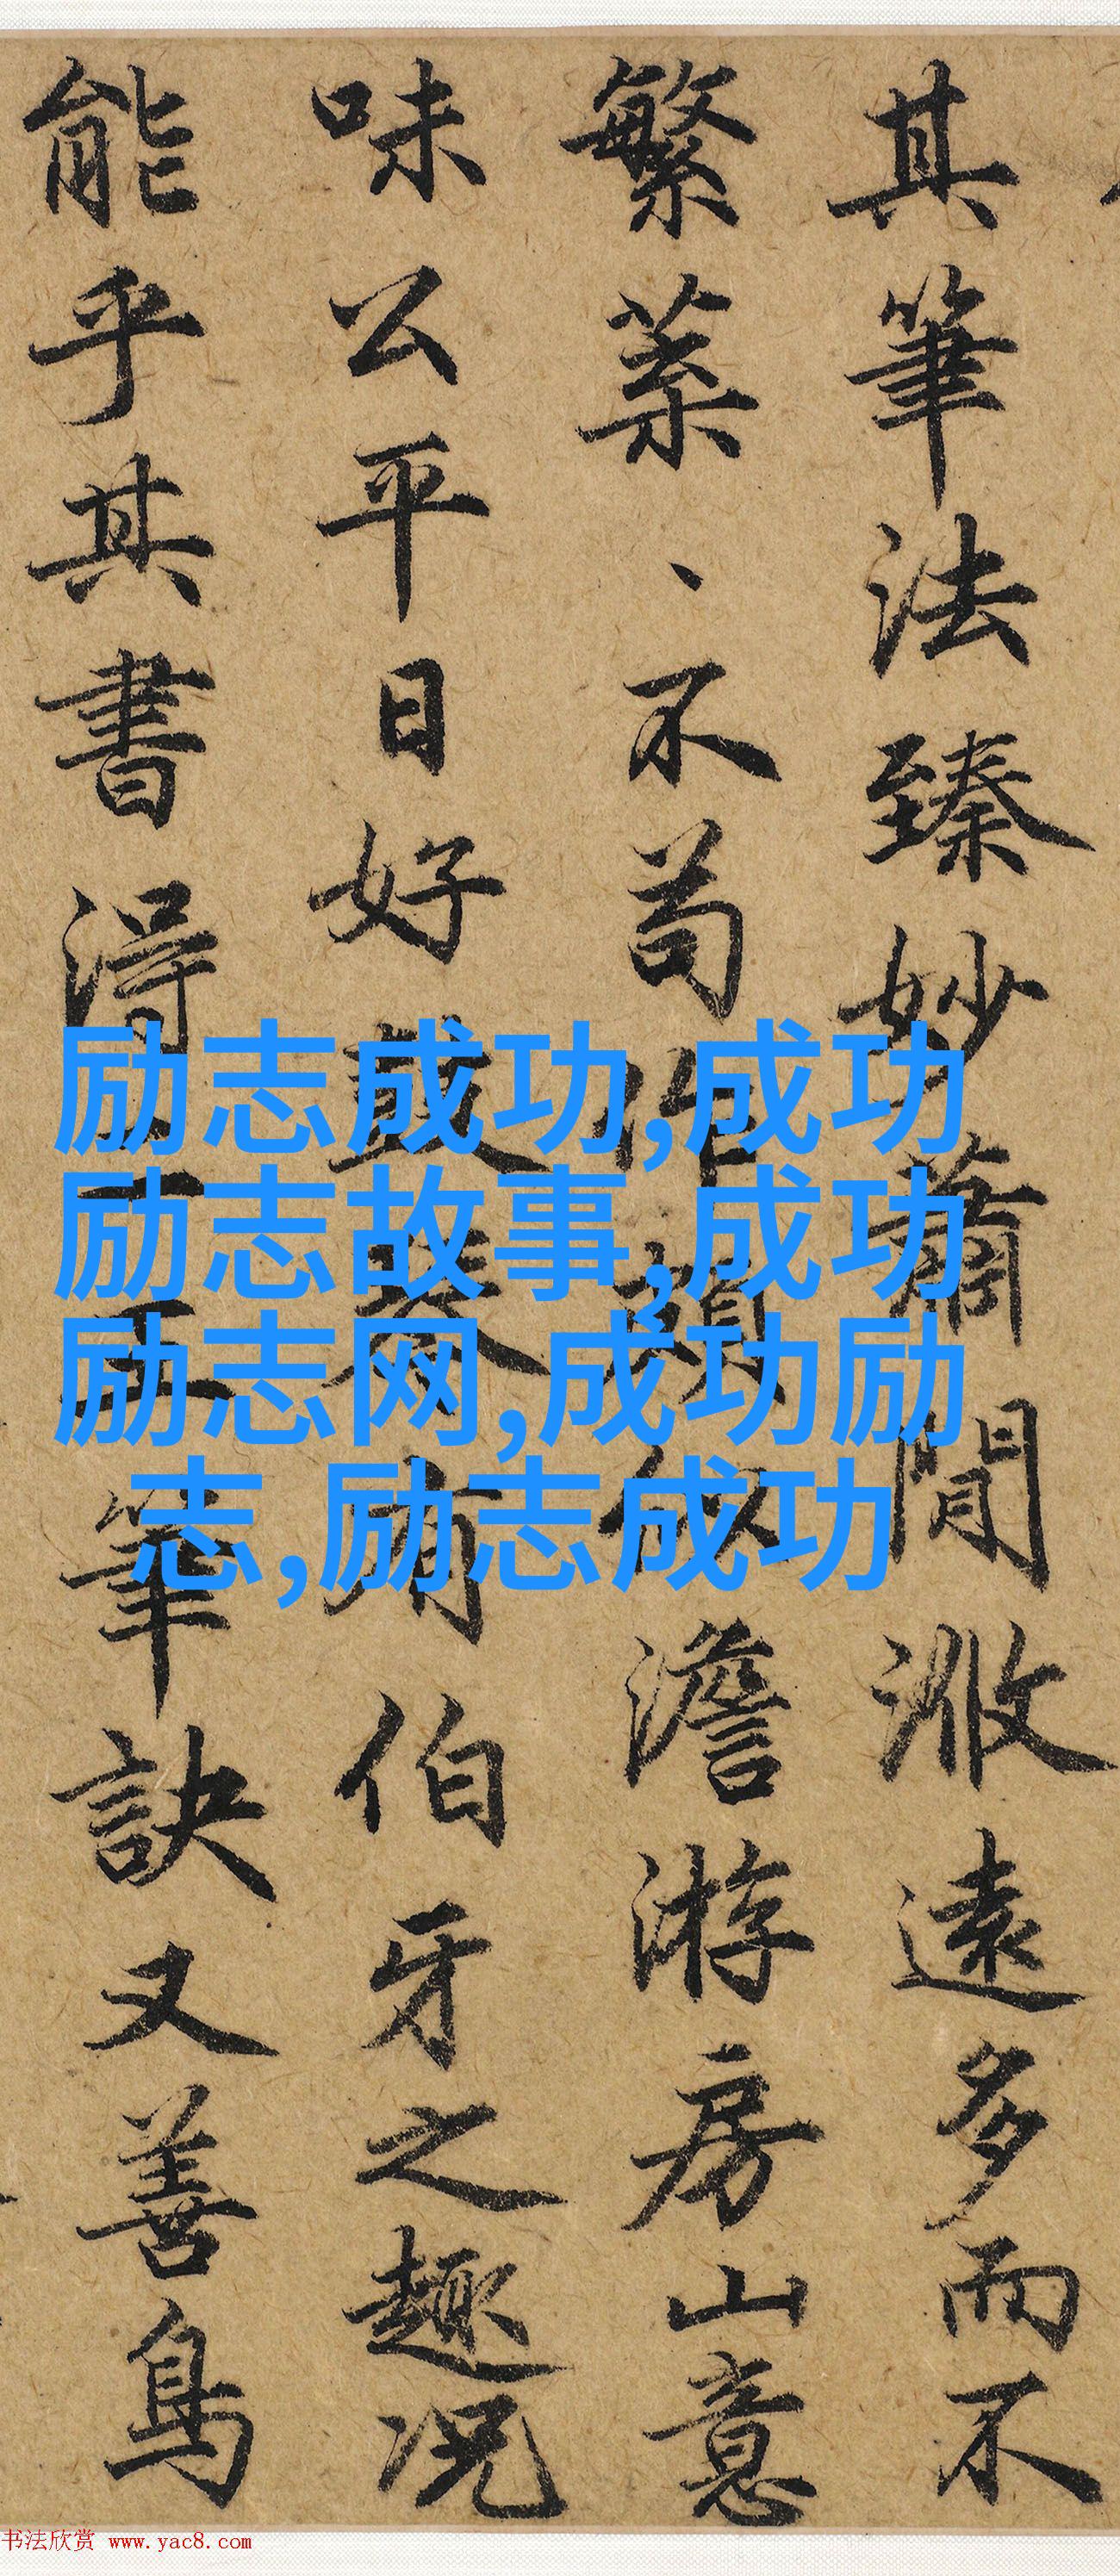 其筆法臻妙蕭閒
遠多而不
繁菉、不苟作
澹游房山意
味公平日好鼓琴有伯牙之趣况
能乎其書得
筆訣又善鳥
励志成功,成功
励志故事,成功
励志网,成功励
志,励志成功
书法欣赏 www.yac8.com